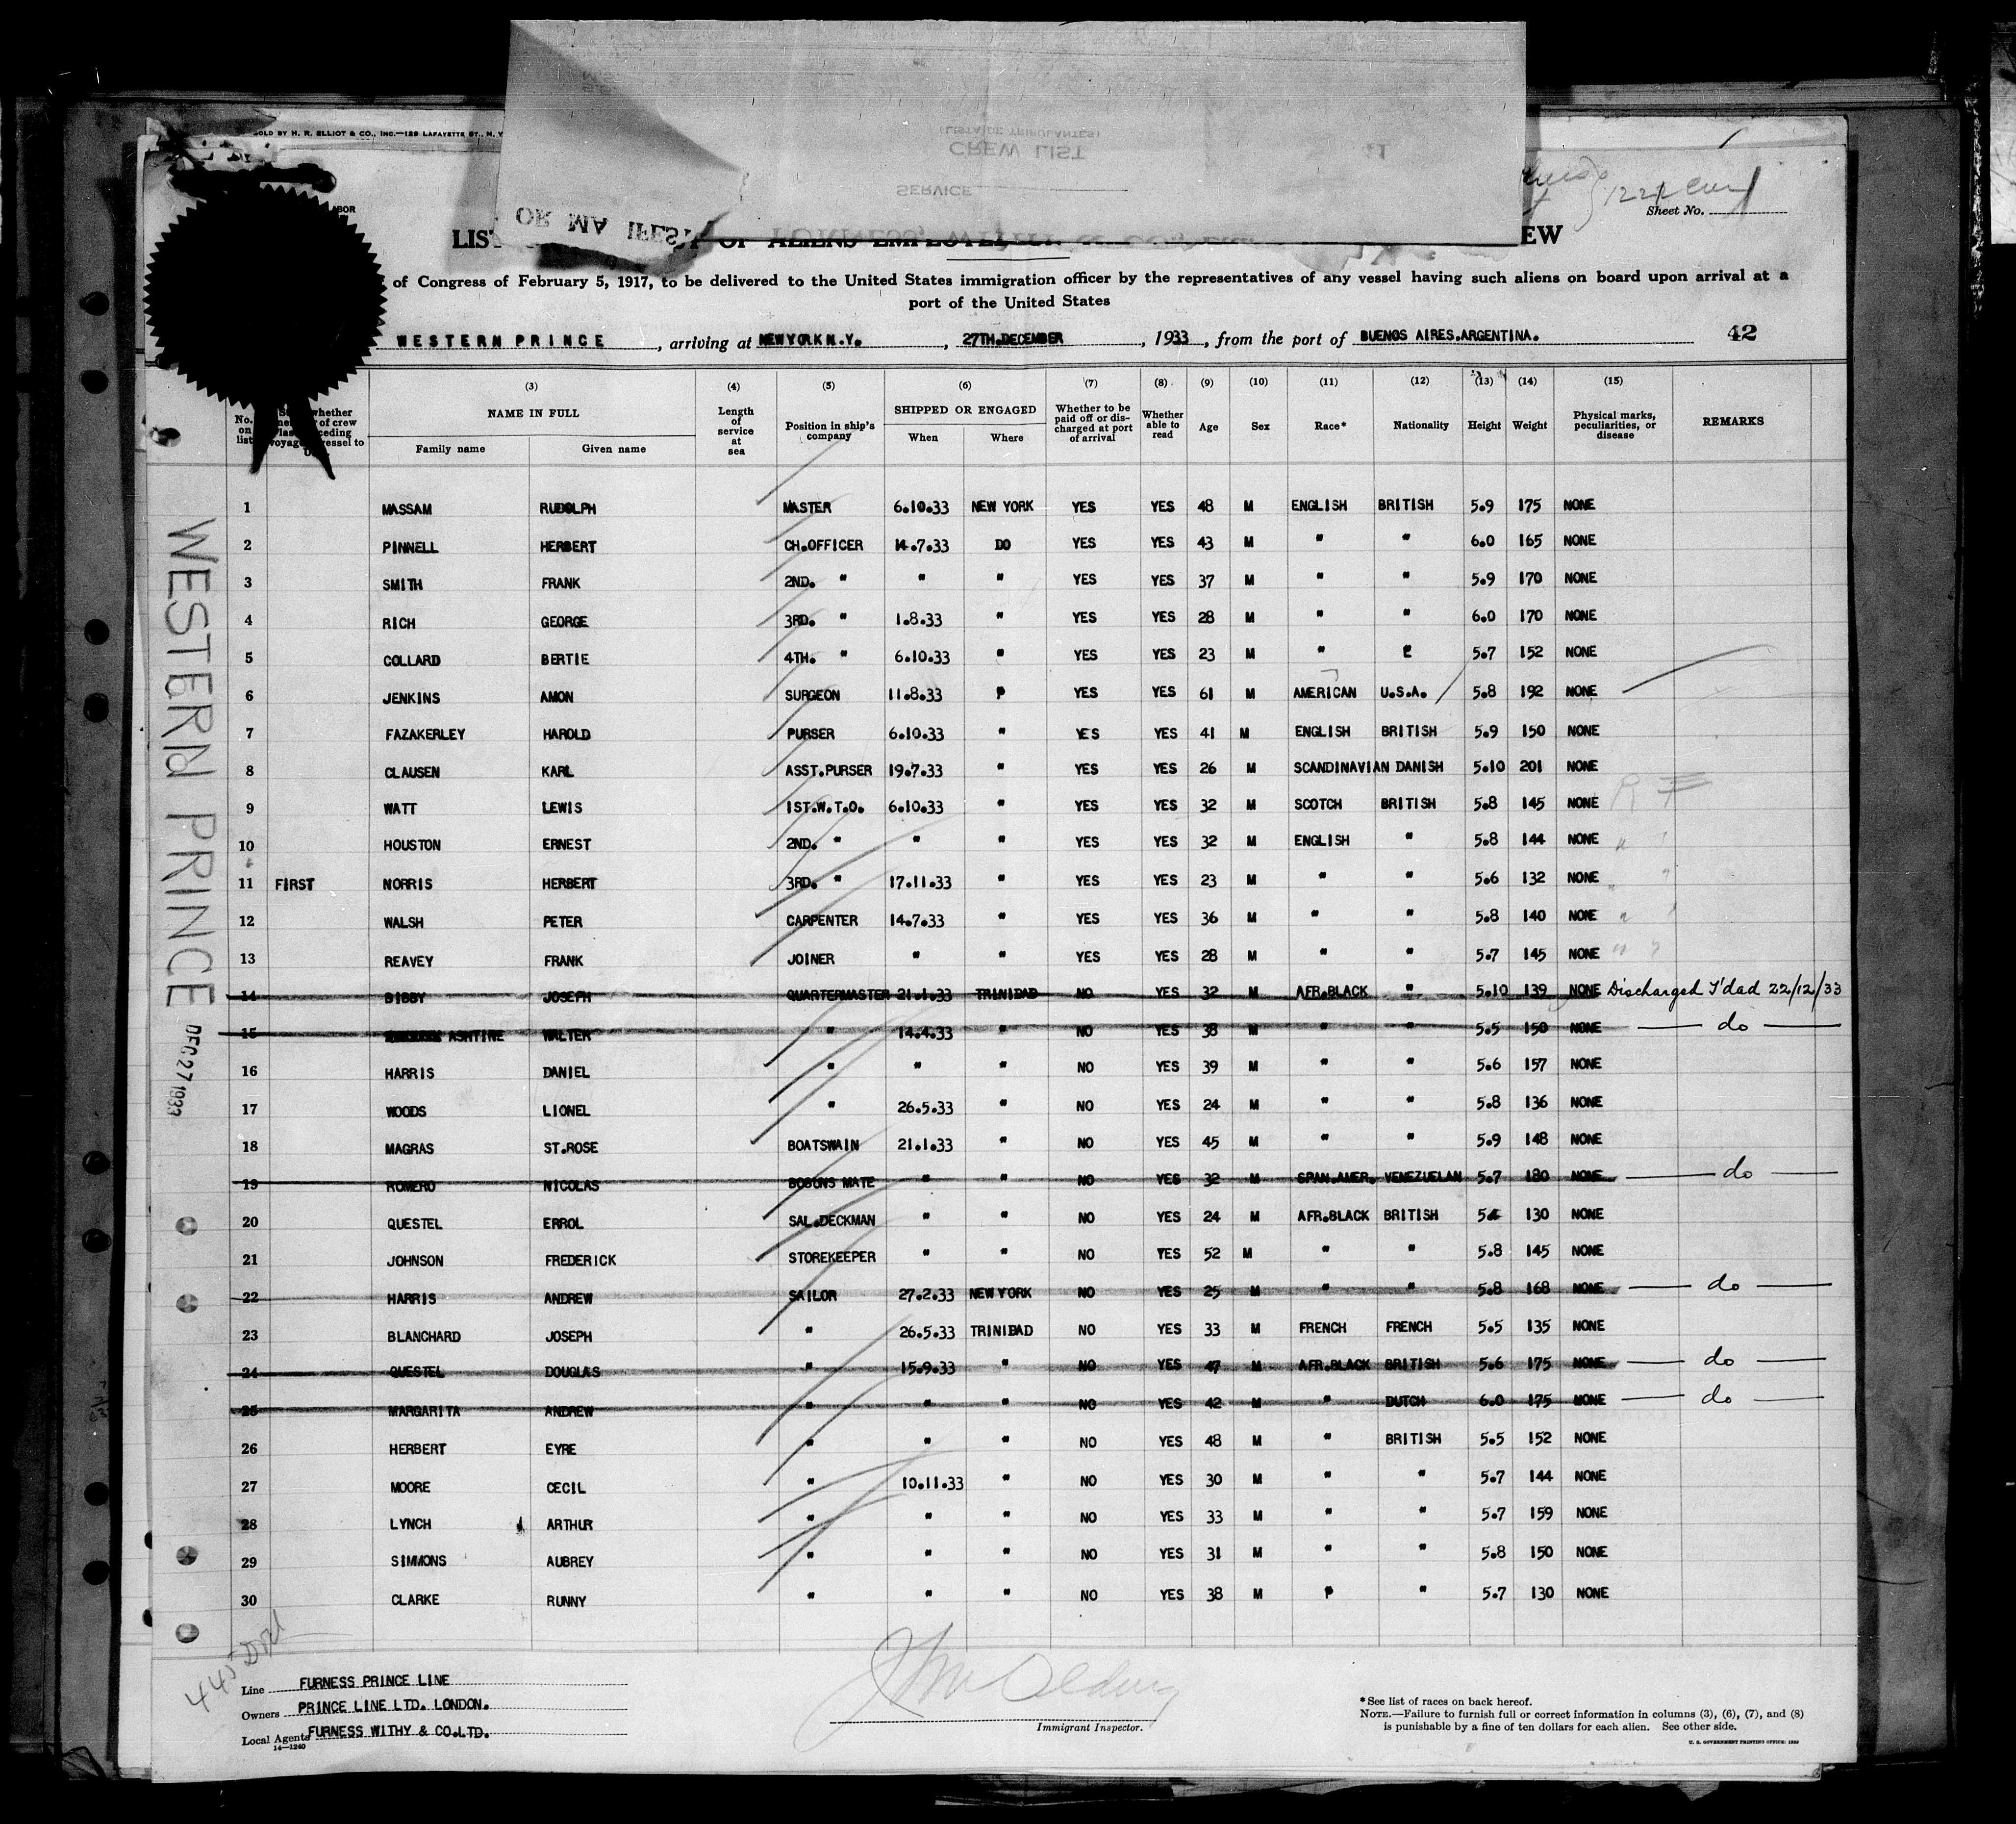 SOLD BY H. R. ELLIOT & CO., INC.—129 LAFAYETTE ST., N. Y
(LISTA DE TRIPULANTES)
CREW LIST
SERVICE
OR MA IFEST
Sheet No.
LIST OF ALIENS EMPLOYED EW
of Congress of February 5, 1917, to be delivered to the United States immigration officer by the representatives of any vessel having such aliens on board upon arrival at a
port of the United States
WESTERN PRINCE , arriving at NEWYORK N.Y. , 27TH.DECEMBER , 1933 , from the port of BUENOS AIRES.ARGENTINA. 42
(3) (4) (5) (6) (7) (8) (9) (10) (11) (12) (13) (14) (15)
No. on list whether of crew voyage vessel to NAME IN FULL Family name Given name Length of service at sea Position in ship's company SHIPPED OR ENGAGED When Where Whether to be paid off or discharged at port of arrival Whether able to read Age Sex Race* Nationality Height Weight Physical marks, peculiarities, or disease REMARKS
1 MASSAM RUDOLPH MASTER 6.10.33 NEW YORK YES YES 48 M ENGLISH BRITISH 5.9 175 NONE
2 PINNELL HERBERT CH.OFFICER 14.7.33 DO YES YES 43 M " " 6.0 165 NONE
3 SMITH FRANK 2ND. " " " YES YES 37 M " " 5.9 170 NONE
4 RICH GEORGE 3RD. " 1.8.33 " YES YES 28 M " " 6.0 170 NONE
5 COLLARD BERTIE 4TH. " 6.10.33 " YES YES 23 M " " 5.7 152 NONE
6 JENKINS AMON SURGEON 11.8.33 " YES YES 61 M AMERICAN U.S.A. 5.8 192 NONE
7 FAZAKERLEY HAROLD PURSER 6.10.33 " YES YES 41 M ENGLISH BRITISH 5.9 150 NONE
8 CLAUSEN KARL ASST.PURSER 19.7.33 " YES YES 26 M SCANDINAVIAN DANISH 5.10 201 NONE
9 WATT LEWIS 1ST.W.T.O. 6.10.33 " YES YES 32 M SCOTCH BRITISH 5.8 145 NONE
10 HOUSTON ERNEST 2ND. " " " YES YES 32 M ENGLISH " 5.8 144 NONE
11 FIRST NORRIS HERBERT 3RD. " 17.11.33 " YES YES 23 M " " 5.6 132 NONE
12 WALSH PETER CARPENTER 14.7.33 " YES YES 36 M " " 5.8 140 NONE
13 REAVEY FRANK JOINER " " YES YES 28 M " " 5.7 145 NONE
14 BIBBY JOSEPH QUARTERMASTER 21.1.33 TRINIDAD NO YES 32 M AFR.BLACK " 5.10 139 NONE Discharged T'dad 22/12/33
15 ASHTINE WALTER " 14.4.33 " NO YES 38 M " " 5.5 150 NONE do
16 HARRIS DANIEL " " " NO YES 39 M " " 5.6 157 NONE
17 WOODS LIONEL " 26.5.33 " NO YES 24 M " " 5.8 136 NONE
18 MAGRAS ST.ROSE BOATSWAIN 21.1.33 " NO YES 45 M " " 5.9 148 NONE
19 ROMERO NICOLAS BOSUNS MATE " " NO YES 32 M SPAN.AMER. VENEZUELAN 5.7 180 NONE do
20 QUESTEL ERROL SAL.DECKMAN " " NO YES 24 M AFR.BLACK BRITISH 130 NONE
21 JOHNSON FREDERICK STOREKEEPER " " NO YES 52 M " " 5.8 145 NONE
22 HARRIS ANDREW SAILOR 27.2.33 NEW YORK NO YES 25 M " " 5.8 168 NONE do
23 BLANCHARD JOSEPH " 26.5.33 TRINIDAD NO YES 33 M FRENCH FRENCH 5.5 135 NONE
24 QUESTEL DOUGLAS " 15.9.33 " NO YES 47 M AFR.BLACK BRITISH 5.6 175 NONE do
25 MARGARITA ANDREW " " " NO YES 42 M " DUTCH 6.0 175 NONE do
26 HERBERT EYRE " " " NO YES 48 M " BRITISH 5.5 152 NONE
27 MOORE CECIL " 10.11.33 " NO YES 30 M " " 5.7 144 NONE
28 LYNCH ARTHUR " " " NO YES 33 M " " 5.7 159 NONE
29 SIMMONS AUBREY " " " NO YES 31 M " " 5.8 150 NONE
30 CLARKE RUNNY " " " NO YES 38 M " " 5.7 130 NONE
WESTERN PRINCE
DEC 27 1933
Line FURNESS PRINCE LINE
Owners PRINCE LINE LTD. LONDON.
Local Agents FURNESS WITHY & CO.LTD.
14—1240
Immigrant Inspector.
*See list of races on back hereof.
NOTE.—Failure to furnish full or correct information in columns (3), (6), (7), and (8)
is punishable by a fine of ten dollars for each alien. See other side.
U. S. GOVERNMENT PRINTING OFFICE: